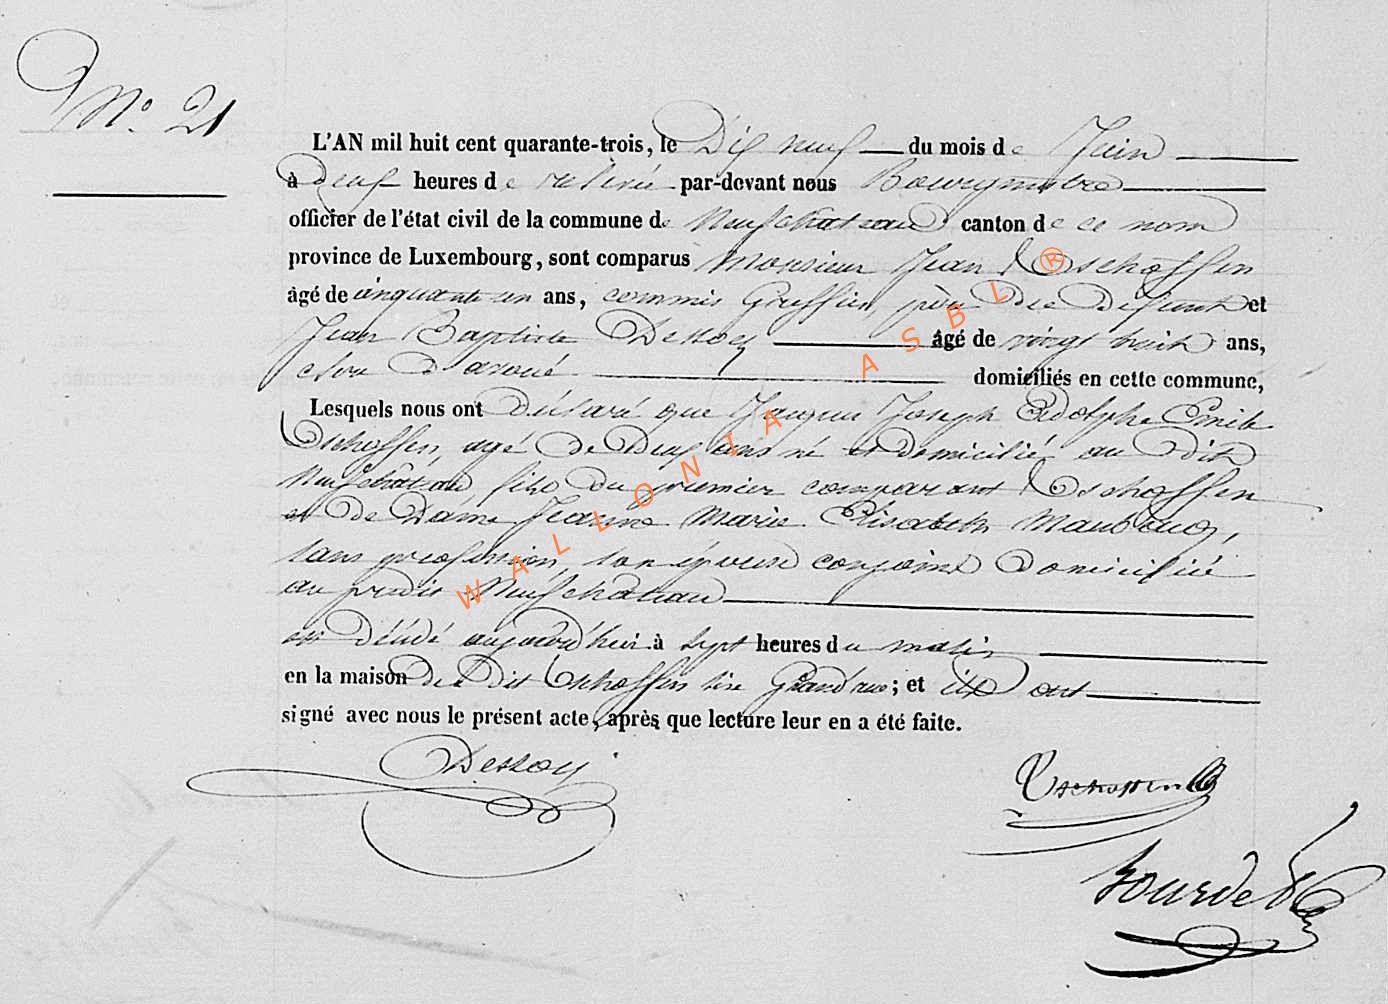 N.° 21
L'AN mil huit cent quarante-trois, le Dix neuf du mois de Juin
à deux heures de relevée par-devant nous Bourgmestre
officier de l'état civil de la commune de Neufchateau canton de ce nom
province de Luxembourg, sont comparus Monsieur Jean Tschoffen
âgé de cinquante un ans, commis Greffier, père du défunt et
Jean Baptiste Dessoy âgé de vingt huit ans,
clerc d'avoué domiciliés en cette commune,
Lesquels nous ont déclaré que Jacques Joseph Adolphe Emile
Tschoffen, agé de deux ans né et domicilié au dit
Neufchâteau fils du premier comparant Tschoffen
et de Dame Jeanne Marie Elisabeth
sans profession, son épouse conjoint domicilié
au prédit Neufchateau
est décédé aujourd'hui à sept heures du matin
en la maison de Dit Tschoffen sise Grand rue; et ils ont
signé avec nous le présent acte, après que lecture leur en a été faite.
Dessoy
Tschoffen
WALLONIA ASBL ®